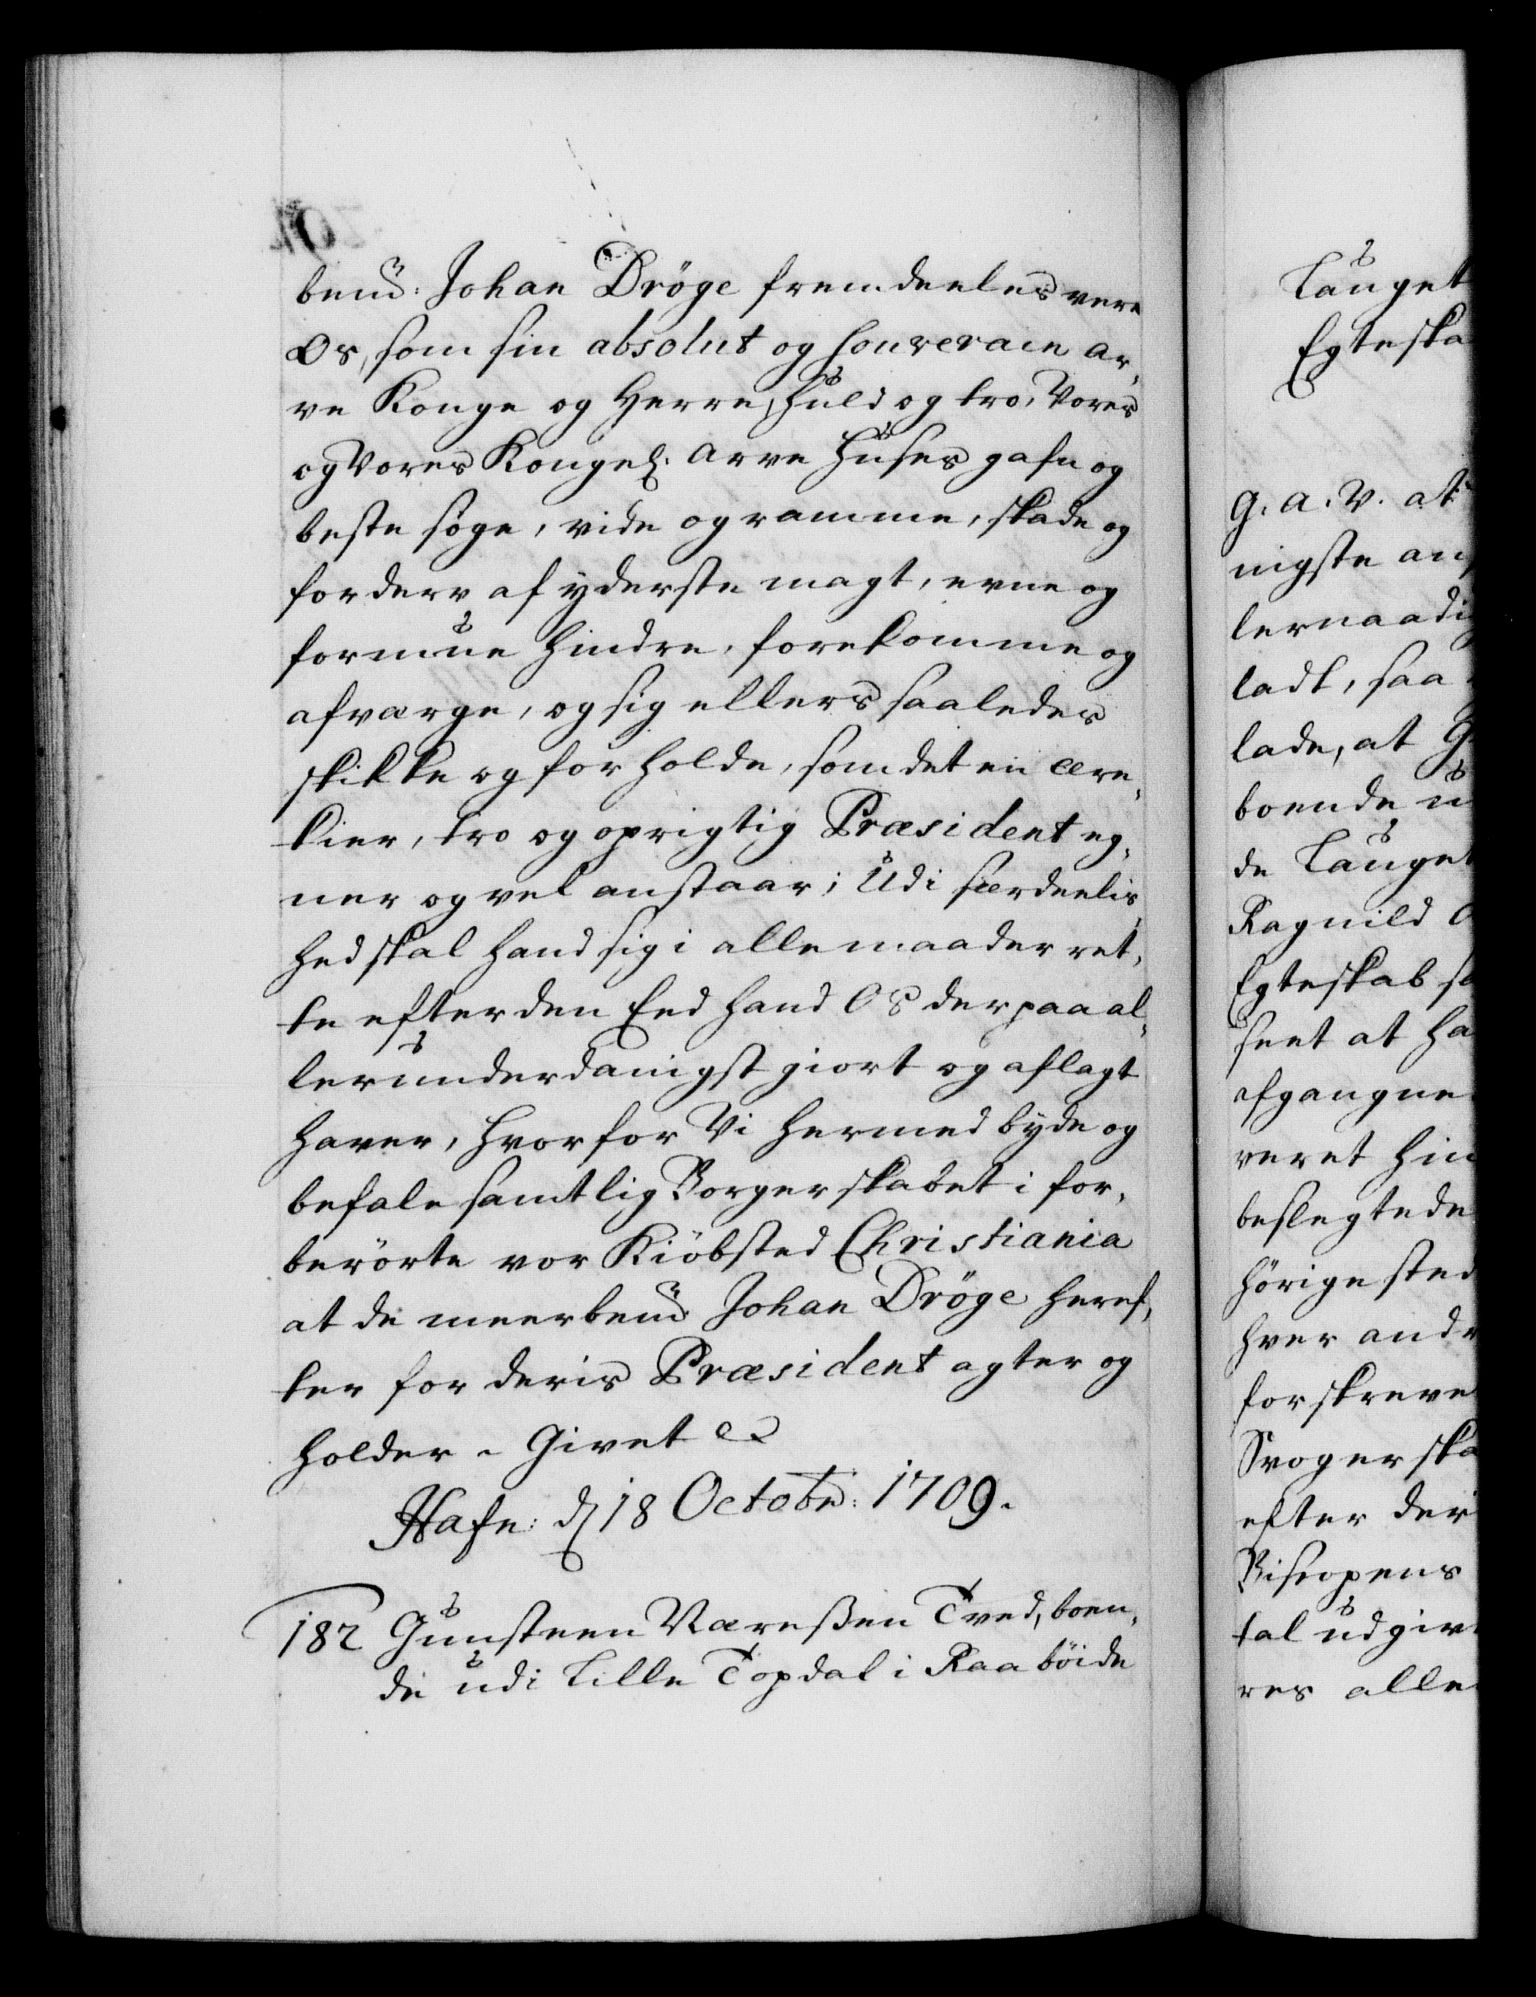 bemd: Johan Dröge fremdeeles være
Os, som sin absolut og souverain ar,
ve Konge og Herre, huld og troe, Vores
og Vores Kongel: arve Huses gafn og
beste søge, vide og ramme, skade og
forderv af yderste magt, evne og
formue hindre, forekomme og
afværge, og sig ellers saaledes
skikke og forholde, som det en ære,
kier, tro og oprigtig Præsident eg,
ner og vel anstaar; Udi særdeelis,
hed skal hand sig i alle maader ret,
te efter den Eed hand Os der paa al,
lerunderdanigst giort og aflagt
haver, hvorfor Vi hermed byde og
befale samtlig Borgerskabet i for,
berørte vor Kiöbsted Christiania
at de meerbemd Johan Dröge heref,
ter for deris Præsident agter og
holder. Givet &c
Hafn: d 18 Octobr: 1709.
182 Gunsteen Væreßen Tved, boen,
de udi Lille Topdal i Raaböide
Lauget
Egteska
G. A. V. at
nigste an
lernaadi
ladt, saa
lade, at G
boende u
de Lauget
Ragnild O
Egteskab
seet at ha
afgangne
veret hin
beslegtede
hörige sted
hver andr
forskreve
Svogerska
efter der
Biscopens
tal udgiv
res alle